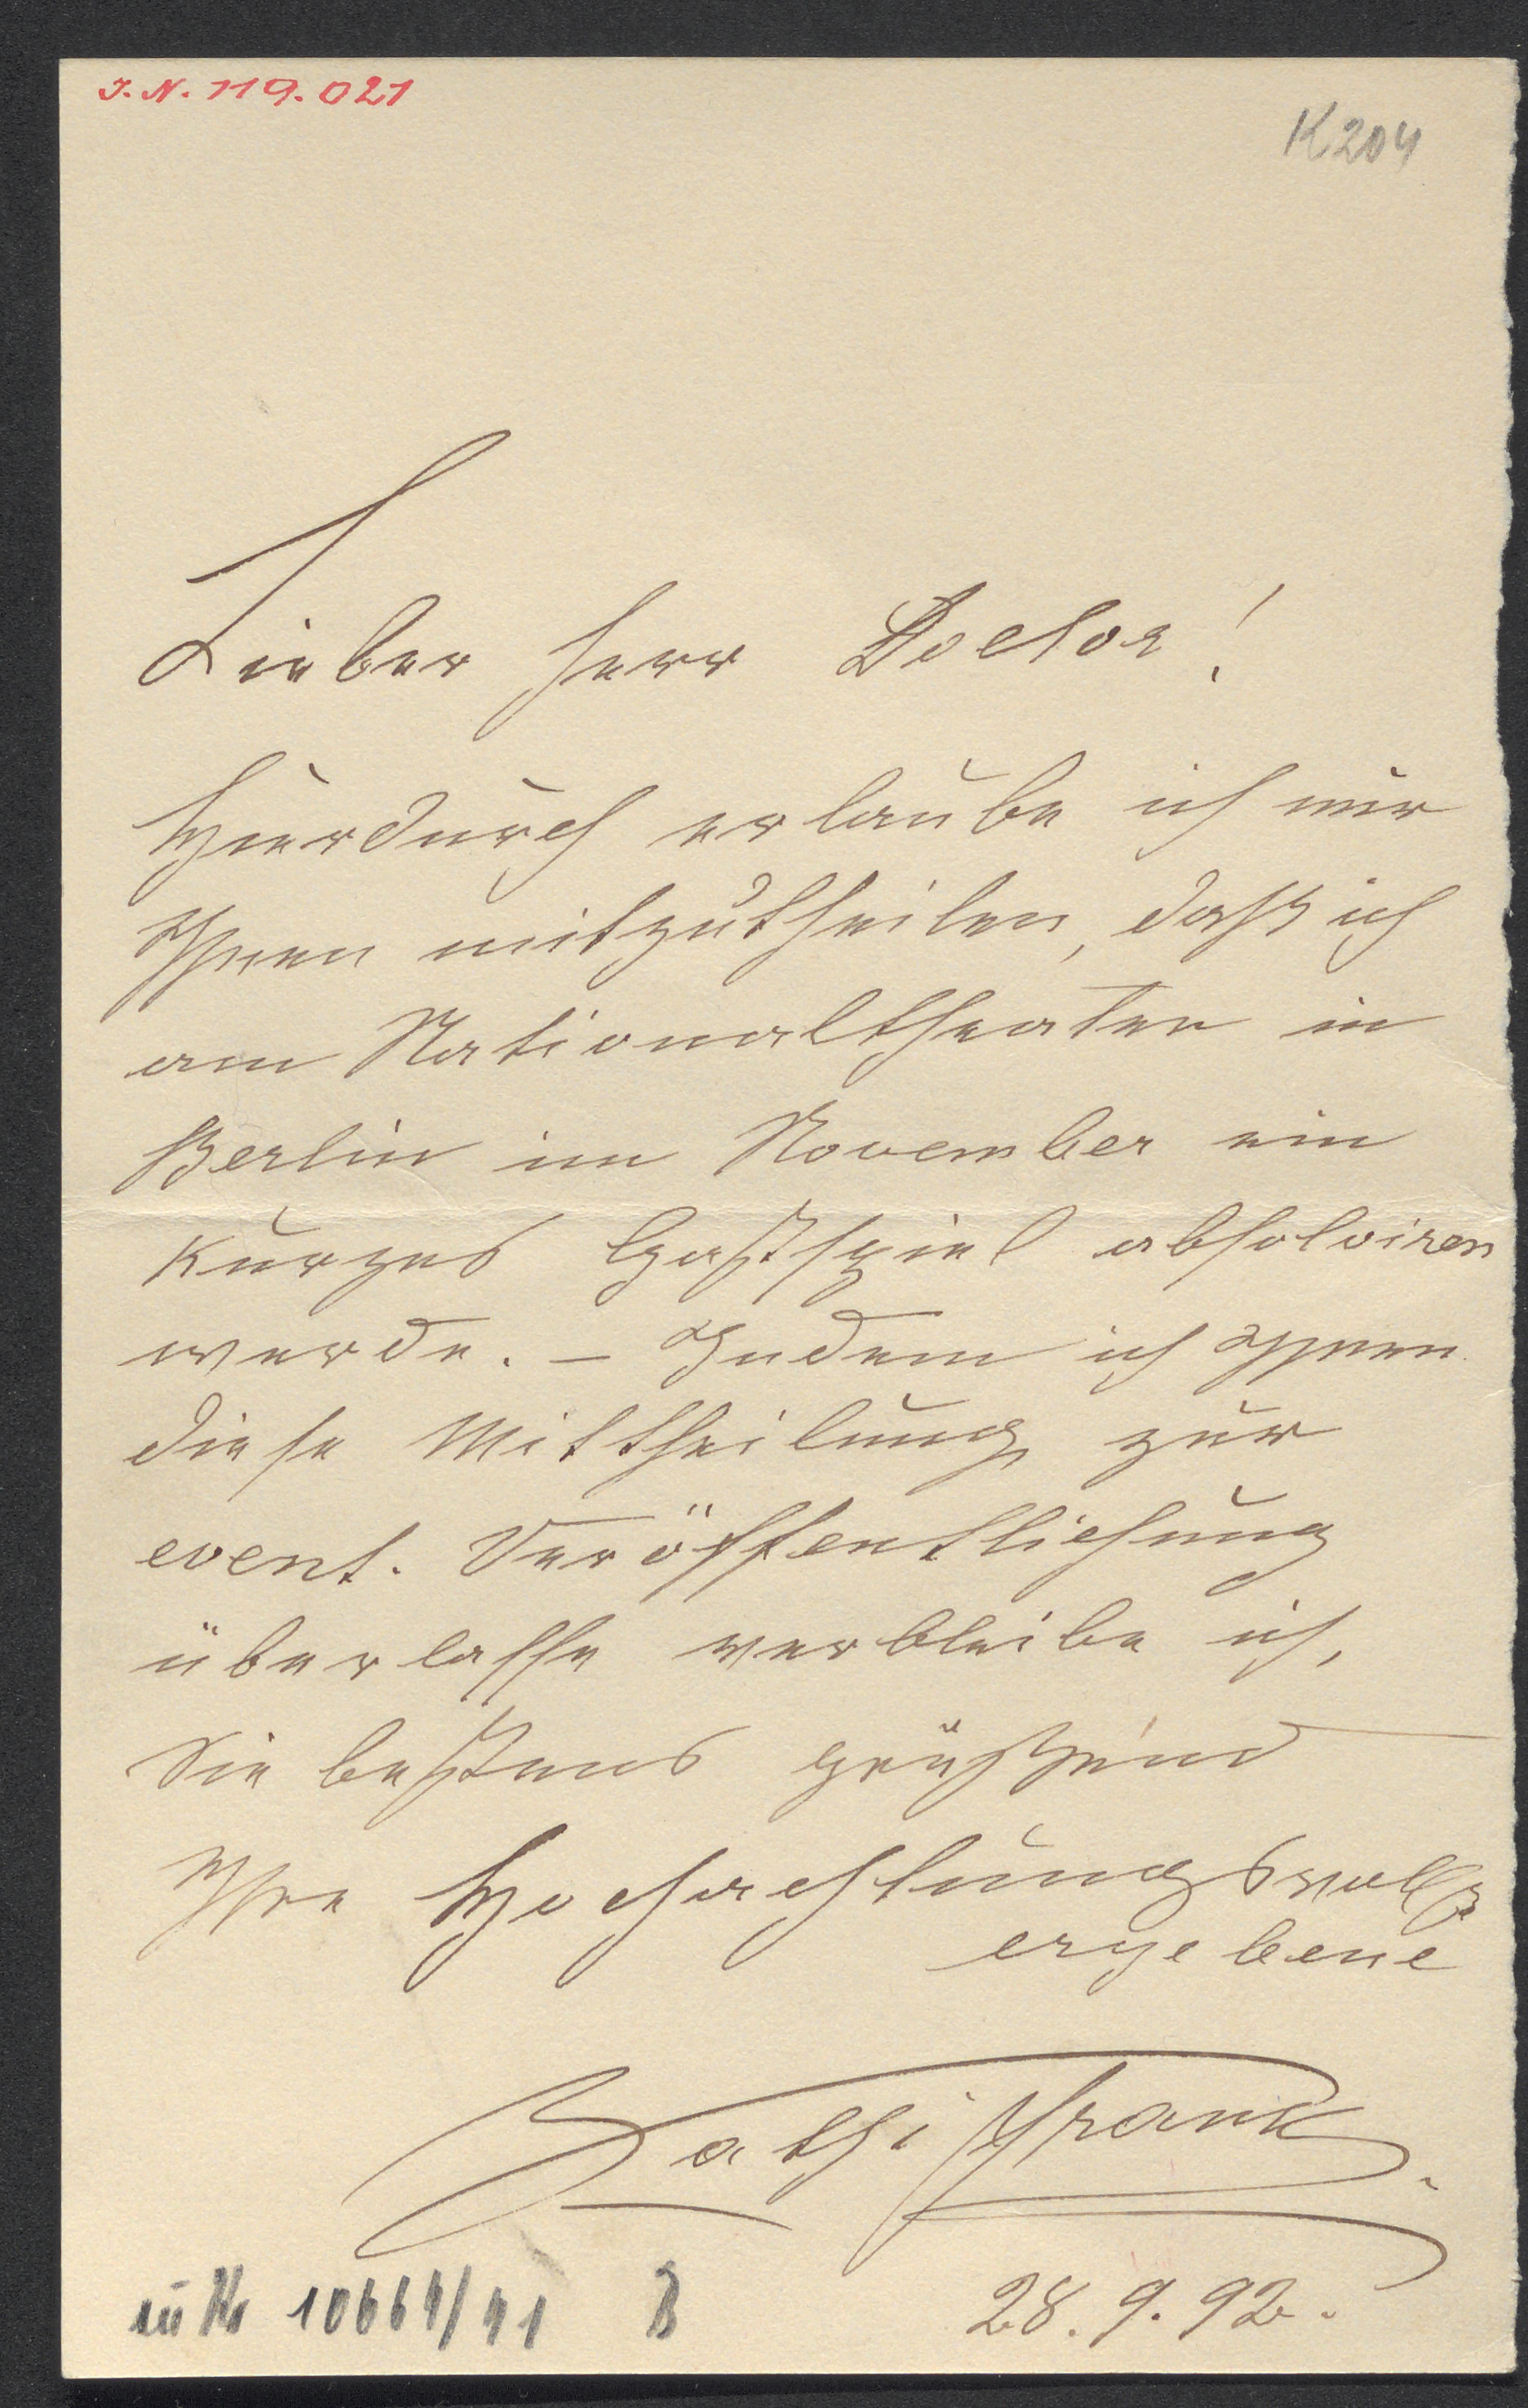 J. N. 119.021
K204
Lieber Herr Doctor!
Hierdurch erlaube ich mir
Ihnen mitzutheilen, daß ich
am Nationaltheater in
Berlin im November ein
kurzes Gastspiel absolviren
werde. – Indem ich Ihnen
diese Mittheilung zur
event. Veröffentlichung
überlasse verbleibe ich,
Sie bestens grüßend
Ihre Hochachtungsvollst
ergebene
Kathi Frank.
28. 9. 92.
10664/41 B